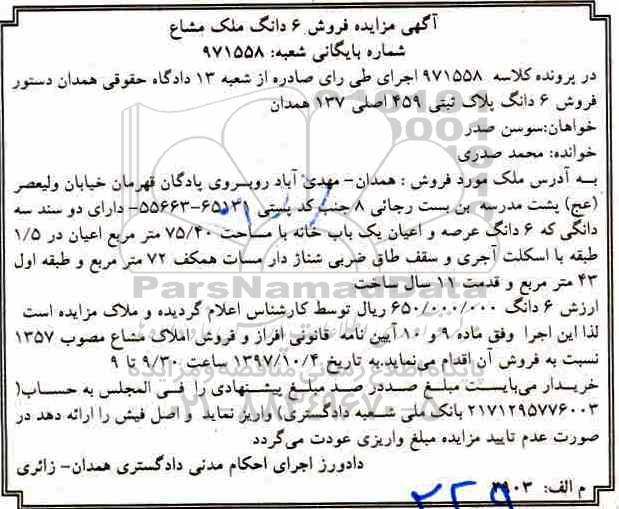 آگهی مزایده فروش ۶ دانگ ملک مشاع
شماره بایگانی شعبه: ۹۷۱۵۵۸
در پرونده کلاسه ۹۷۱۵۵۸ اجرای طی رای صادره از شعبه ۱۳ دادگاه حقوقی همدان دستور
فروش ۶ دانگ پلاک ثبتی ۴۵۹ اصلی ۱۳۷ همدان
خواهان:سوسن صدر
خوانده: محمد صدری
به آدرس ملک مورد فروش : همدان- مهدی آباد روبروی پادگان قهرمان خیابان ولیعصر
(عج) پشت مدرسه بن بست رجائی ۸ جنب کد پستی ۶۵۱۳۱-۵۵۶۶۳- دارای دو سند سه
دانگی که ۶ دانگ عرصه و اعیان یک باب خانه با مساحت ۷۵/۴۰ متر مربع اعیان در ۱/۵
طبقه با اسکلت آجری و سقف طاق ضربی شناژ دار مسات همکف ۷۲ متر مربع و طبقه اول
۴۳ متر مربع و قدمت ۱۱ سال ساخت
ارزش ۶ دانگ ۶۵۰/۰۰۰/۰۰۰ ریال توسط کارشناس اعلام گردیده و ملاک مزایده است
لذا این اجرا وفق ماده ۹ و ۱۰ آیین نامه قانونی افراز و فروش املاک مشاع مصوب ۱۳۵۷
نسبت به فروش آن اقدام می‌نماید.به تاریخ ۱۳۹۷/۱۰/۴ ساعت ۹/۳۰ تا ۹
خریدار می‌بایست مبلغ صددر صد مبلغ پیشنهادی را فی المجلس به حساب(
۲۱۷۱۲۹۵۷۷۶۰۰۳ بانک ملی شعبه دادگستری) واریز نماید و اصل فیش را ارائه دهد در
صورت عدم تایید مزایده مبلغ واریزی عودت می‌گردد
دادورز اجرای احکام مدنی دادگستری همدان- زائری
م الف: ۳۹۰۳
۲۲۹
ParsNamadData